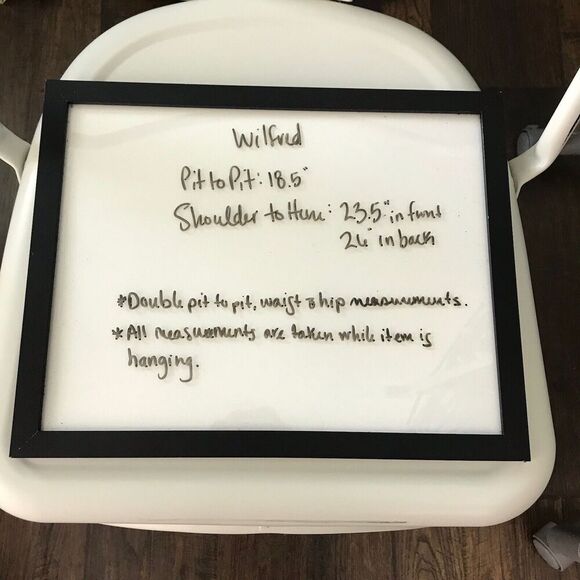 Wilfred
Pit to Pit: 18.5"
Shoulder to Hem: 23.5" in front
26" in back
*Double pit to pit, waist & hip measurements.
*All measurements are taken while item is
hanging.